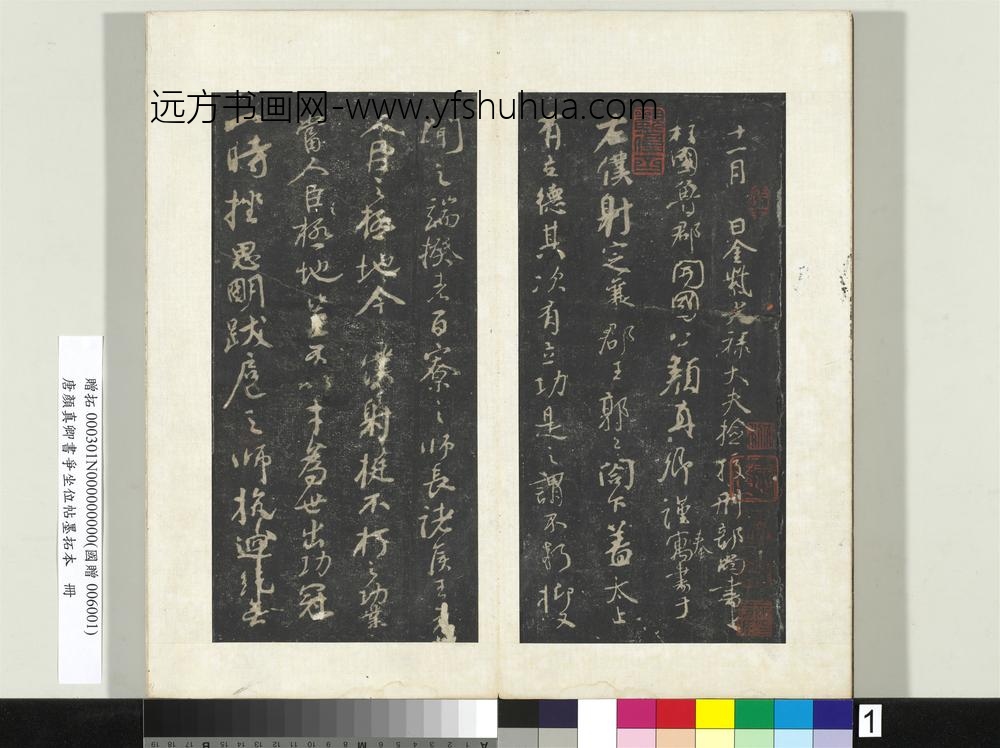 远方书画网-www.yfshuhua.com
十一月 日金紫光禄大夫捡挍刑部尚書上
柱國魯郡開國公顔真卿謹奉寓書于
右僕射定襄郡王郭公閤下蓋太上
有立德其次有立功是之謂不朽抑又
聞之端揆者百寮之師長諸侯王者
人臣之極地今 僕射挺不朽之功業
當人臣極地豈不以才為世出功冠
一時挫思明跋扈之師抗迴紇
贈拓 000301N000000000(國贈 006001)
唐顏真卿書爭坐位帖墨拓本 冊
1